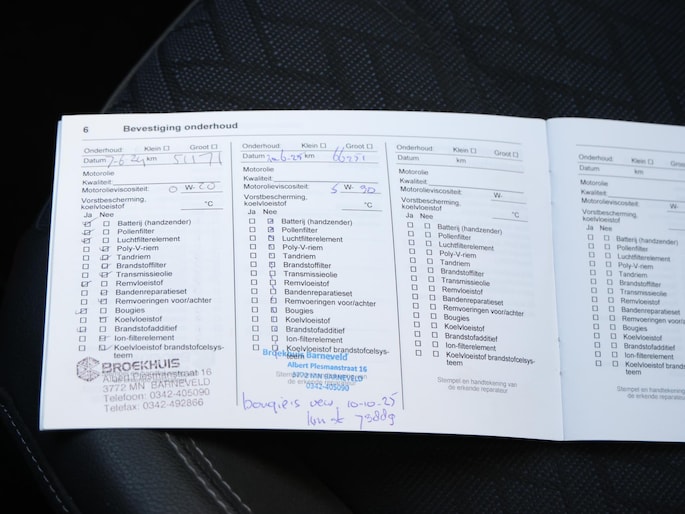 6 Bevestiging onderhoud
Onderhoud: Klein Groot
Datum 7-6-24 km 51171
Motorolie
Kwaliteit:
Motorolieviscositeit: 0 W- 20
Vorstbescherming, koelvloeistof °C
Ja Nee
Batterij (handzender)
Pollenfilter
Luchtfilterelement
Poly-V-riem
Tandriem
Brandstoffilter
Transmissieolie
Remvloeistof
Bandenreparatieset
Remvoeringen voor/achter
Bougies
Koelvloeistof
Brandstofadditief
Ion-filterelement
Koelvloeistof brandstofcelsys-
teem
BROEKHUIS
Albert Plesmanstraat 16
3772 MN BARNEVELD
Telefoon: 0342-405090
Telefax: 0342-492866
Onderhoud: Klein Groot
Datum km
Motorolie
Kwaliteit:
Motorolieviscositeit: 5 W- 30
Vorstbescherming,
koelvloeistof °C
Ja Nee
Batterij (handzender)
Pollenfilter
Luchtfilterelement
Poly-V-riem
Tandriem
Brandstoffilter
Transmissieolie
Remvloeistof
Bandenreparatieset
Remvoeringen voor/achter
Bougies
Koelvloeistof
Brandstofadditief
Ion-filterelement
Koelvloeistof brandstofcelsys-
teem
Broekhuis Barneveld
Albert Plesmanstraat 16
3772 MN BARNEVELD
0342-405090
bougie's verv. 10-10-25
km st 79889
Onderhoud: Klein Groot
Datum km
Motorolie
Kwaliteit:
Motorolieviscositeit: W-
Vorstbescherming,
koelvloeistof °C
Ja Nee
Batterij (handzender)
Pollenfilter
Luchtfilterelement
Poly-V-riem
Tandriem
Brandstoffilter
Transmissieolie
Remvloeistof
Bandenreparatieset
Remvoeringen voor/achter
Bougies
Koelvloeistof
Brandstofadditief
Ion-filterelement
Koelvloeistof brandstofcelsys-
teem
Stempel en handtekening van
de erkende reparateur
Onderhoud: Klein
Datum km
Motorolie
Kwaliteit:
Motorolieviscositeit:
Vorstbescherming,
koelvloeistof
Ja Nee
Batterij (handzender)
Pollenfilter
Luchtfilterelement
Poly-V-riem
Tandriem
Brandstoffilter
Transmissieolie
Remvloeistof
Bandenreparatieset
Remvoeringen voor/
Bougies
Koelvloeistof
Brandstofadditief
Ion-filterelement
Koelvloeistof brandstof
teem
Stempel en handtekening
de erkende reparateur